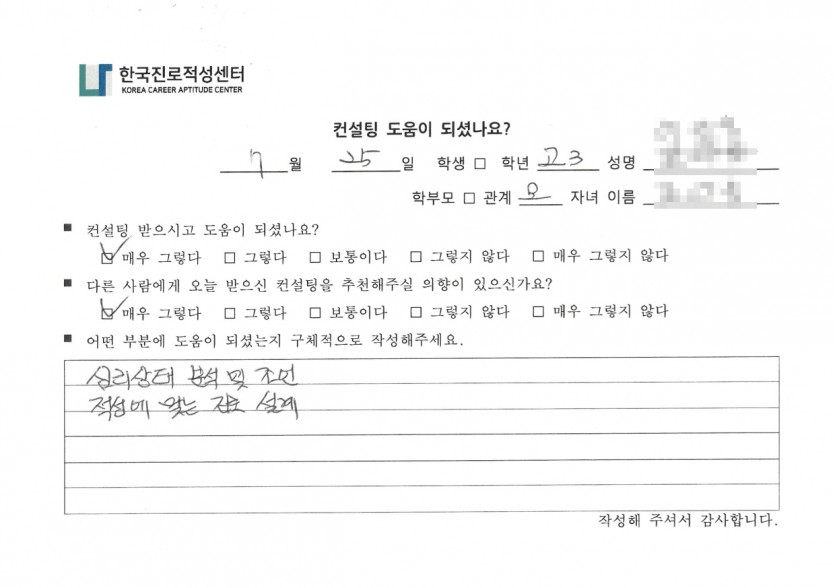 한국진로적성센터
KOREA CAREER APTITUDE CENTER
컨설팅 도움이 되셨나요?
7 월 25 일 학생 □ 학년 고3 성명
학부모 □ 관계 모 자녀 이름
■ 컨설팅 받으시고 도움이 되셨나요?
☑ 매우 그렇다 □ 그렇다 □ 보통이다 □ 그렇지 않다 □ 매우 그렇지 않다
■ 다른 사람에게 오늘 받으신 컨설팅을 추천해주실 의향이 있으신가요?
☑ 매우 그렇다 □ 그렇다 □ 보통이다 □ 그렇지 않다 □ 매우 그렇지 않다
■ 어떤 부분에 도움이 되셨는지 구체적으로 작성해주세요.
심리상태 분석 및 조언
적성에 맞는 진로 설계
작성해 주셔서 감사합니다.